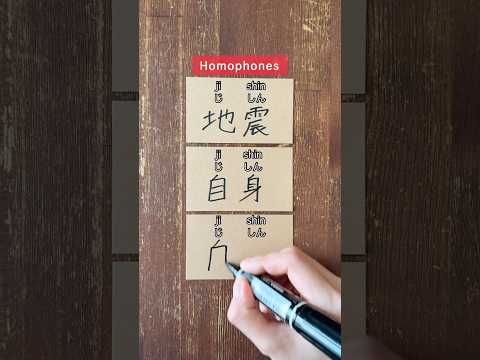 Homophones
ji shin
じ しん
地震
ji shin
じ しん
自身
ji shin
じ しん